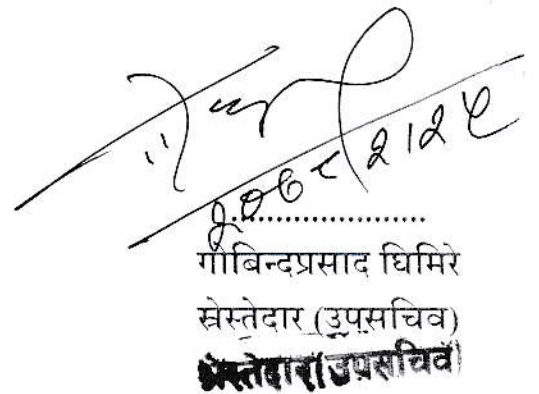 २०७८।२।२५
गोबिन्दप्रसाद घिमिरे
स्रेस्तेदार (उपसचिव)
स्रेस्तेदार(उपसचिव)